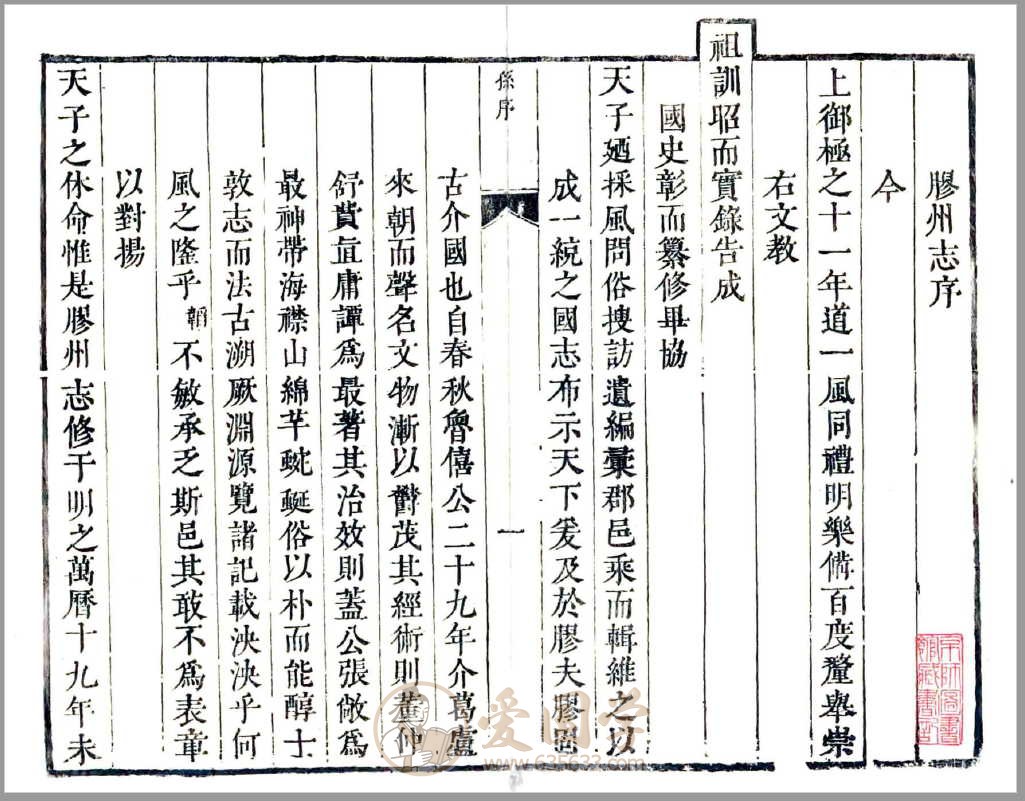 膠州志序
今
上御極之十一年道一風同禮明樂備百度釐舉崇
右文教
祖訓昭而實錄告成
國史彰而纂修畢協
天子廼採風問俗搜訪遺編彙郡邑乘而輯維之以
成一統之國志布示天下爰及於膠夫膠固
孫序
一
古介國也自春秋魯僖公二十九年介葛盧
來朝而聲名文物漸以欝茂其經術則董仲
舒費直庸譚爲最著其治效則蓋公張敞爲
最神帶海襟山綿芊蜿蜒俗以朴而能醇士
敦志而法古溯厥淵源覽諸記載泱泱乎何
風之隆乎不敏承乏斯邑其敢不爲表章
以對揚
天子之休命惟是膠州志修于明之萬曆十九年未
爱国学
www.635633.com